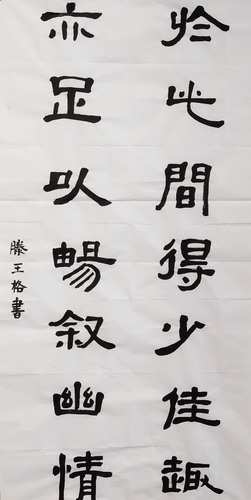 於此間得少佳趣
亦足以暢叙幽情
滕王格書